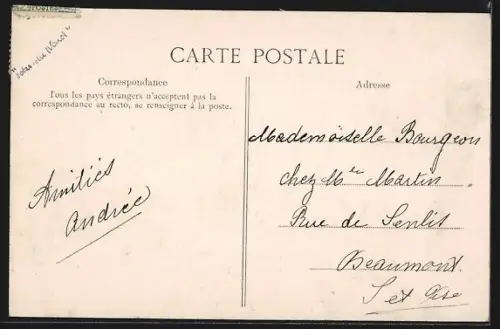 CARTE POSTALE
Correspondance
Tous les pays étrangers n'acceptent pas la
correspondance au recto, se renseigner à la poste.
Amitiés
Andrée
Adresse
Mademoiselle Bourgeon
chez Mme Martin
Rue de Senlis
Beaumont
S et Oise